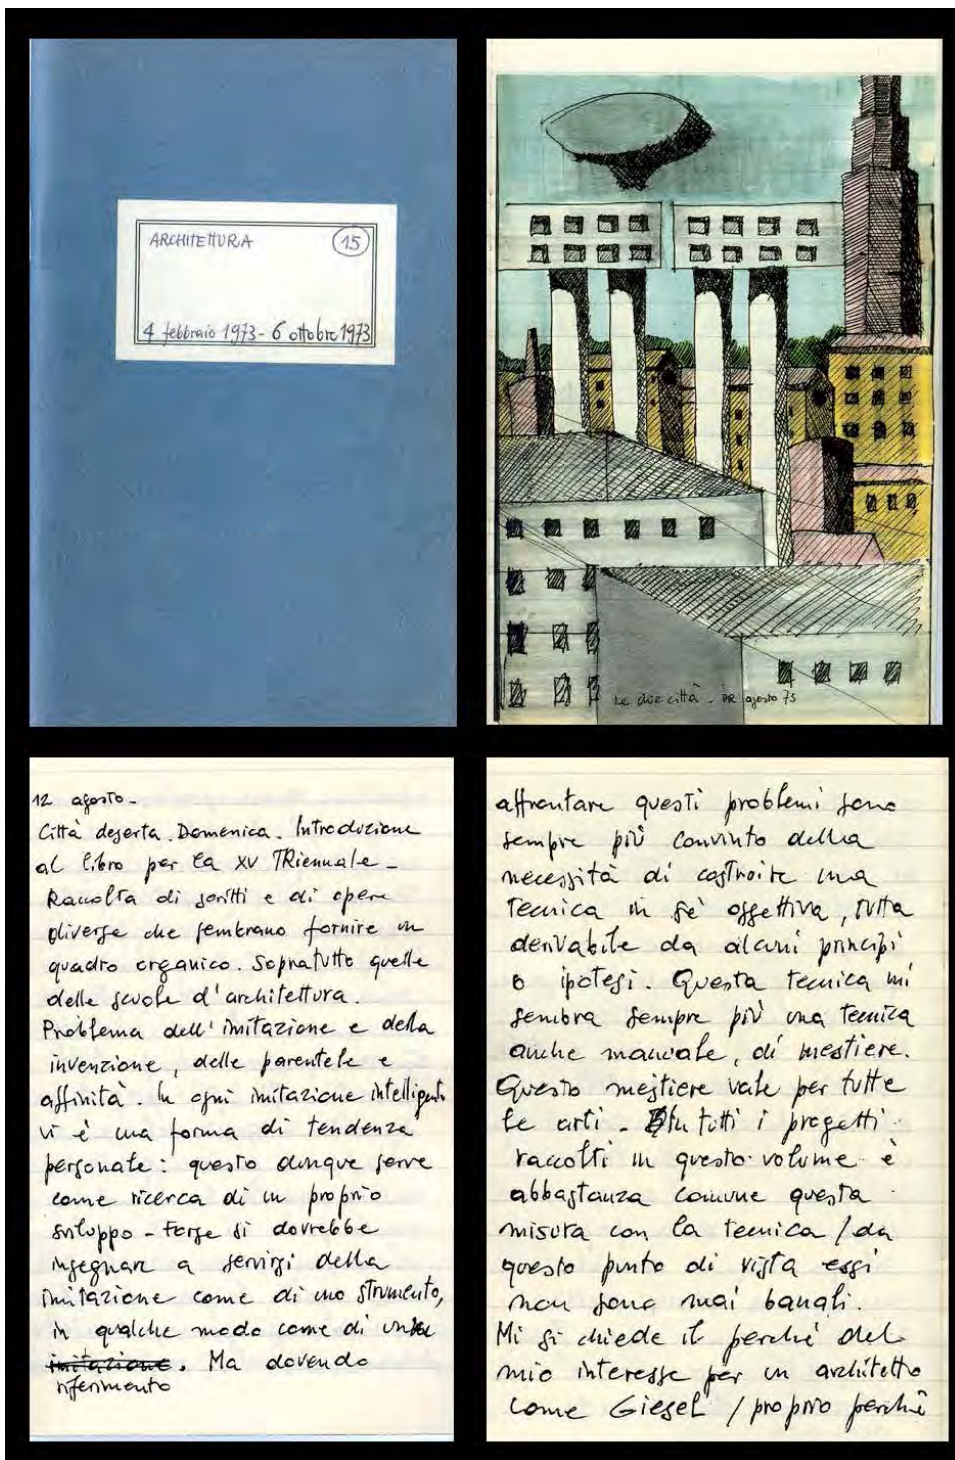 ARCHITETTURA
15
4 febbraio 1973 - 6 ottobre 1973
Le due città - AR agosto 73
12 agosto -
Città deserta. Domenica. Introduzione
al libro per la XV TRiennale -
Raccolta di scritti e di opere
diverse che sembrano fornire un
quadro organico. Sopratutto quelle
delle scuole d'architettura.
Problema dell'imitazione e della
invenzione, delle parentele e
affinità. In ogni imitazione intelligente
vi è una forma di tendenza
personale: questo dunque serve
come ricerca di un proprio
sviluppo - Forse si dovrebbe
insegnare a servirsi della
imitazione come di uno strumento,
in qualche modo come di un
imitazione. Ma dovendo
riferimento
affrontare questi problemi sono
sempre più convinto della
necessità di costruire una
Tecnica in sè oggettiva, tutta
derivabile da alcuni principi
o ipotesi. Questa tecnica mi
sembra sempre più una tecnica
anche manuale, di mestiere.
Questo mestiere vale per tutte
le arti - In tutti i progetti
raccolti in questo volume è
abbastanza comune questa
misura con la tecnica / da
questo punto di vista essi
non sono mai banali.
Mi si chiede il perchè del
mio interesse per un architetto
come Giesel / proprio perchè